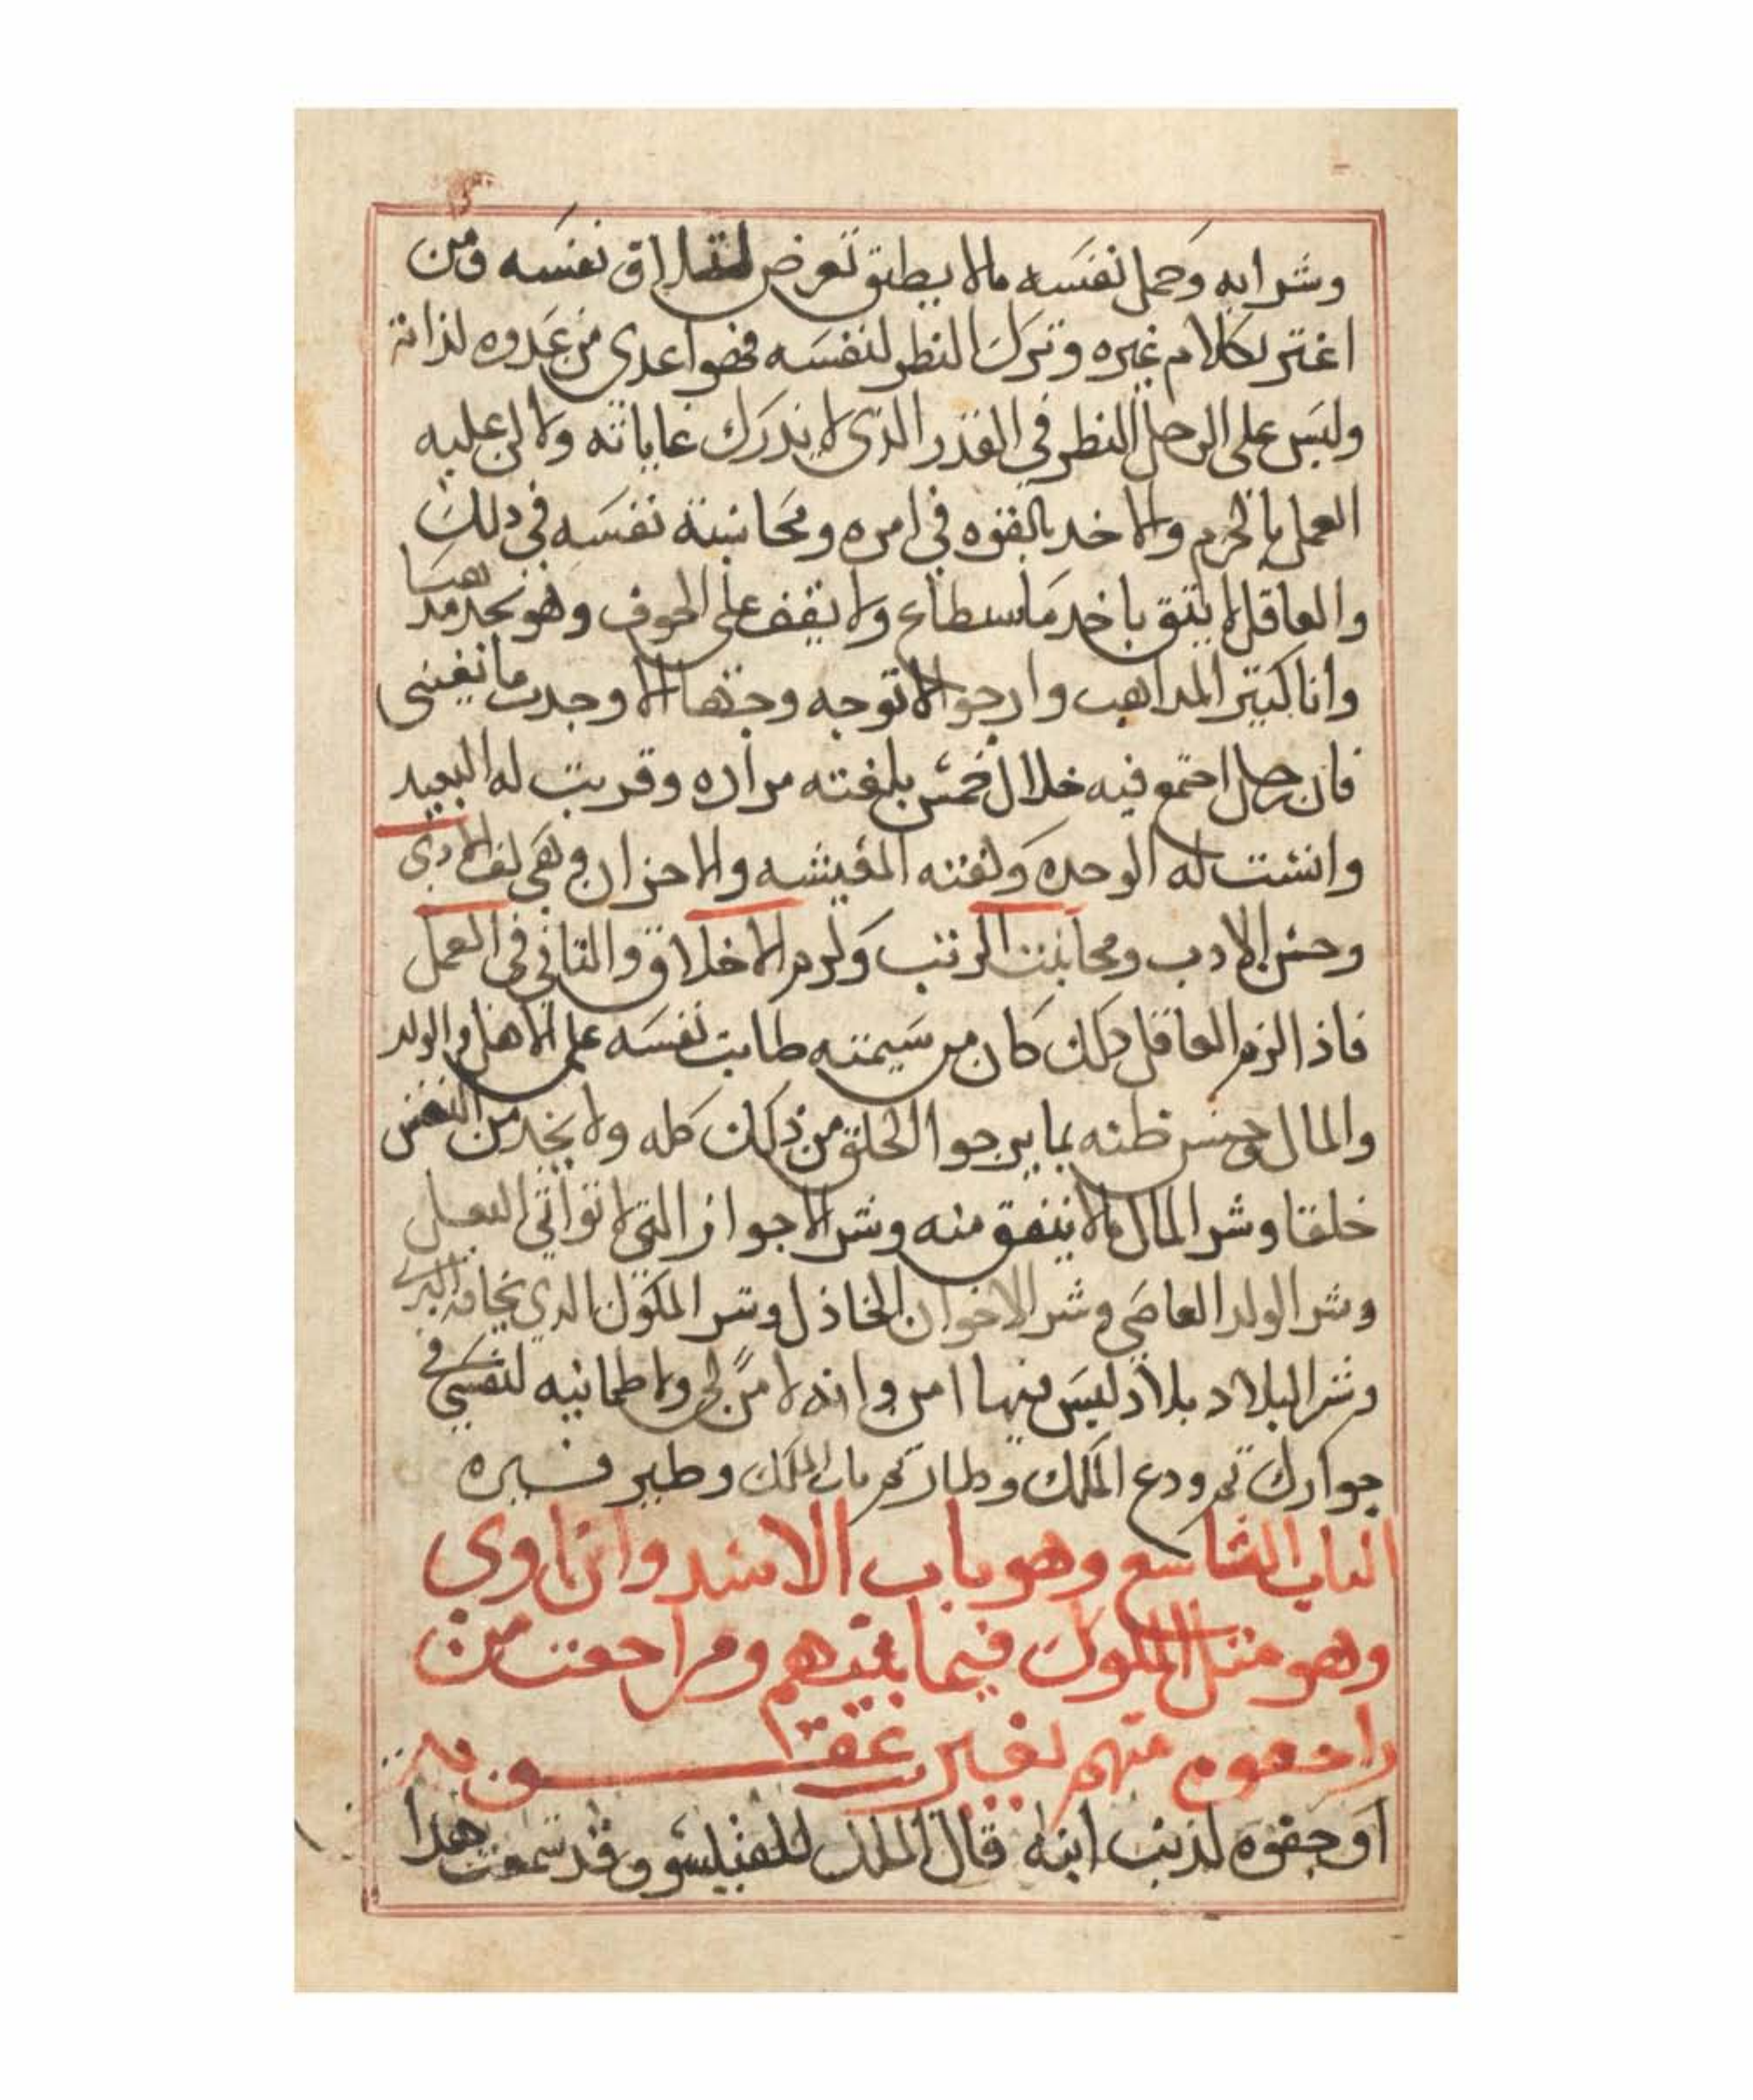 وشرابه وحمل نفسه مالا يطيق تعرض نفسه ومن
اغتر بكلام غيره وترك النظر لنفسه فهو اعدى من عدوه لذاته
وليس على الرجل النظر في القدر الذي لا يدرك غاياته ولا لن عليه
العمل بالحزم والاخد بالقوه في امره ومحاسبة نفسه في دلك
والعاقل لا يثق باخد ماسطاع ولا يقف على الخوف وهو يجد مدهبا
وانا كثير المداهب وارجوا الا توجه وجها الا وجدت ما يغيني
فان رجل اجتمع فيه خلال خمس بلغته مراده وقربت له البعيد
وانست له الوحده ولقته المعيشه والاحزان وهي لف الادى
وحسن الادب ومجانبت الريب وكرم الاخلاق والثاني في العمل
فاذا لزم العاقل دلك كان من سيمته طابت نفسه على الاهل والولد
والمال وحسن ظنه بما يرجوا الخلق من ذلك كله ولا يجد من النفس
خلفا وشر المال مالا ينفق منه وشر الاجواز التي لا تواتي البعل
وشر الولد العاصي وشر الاخوان الخاذل وشر الملوك الدي يخافه البري
وشر البلاد بلاد ليس فيها امن وانه لا امن لي ولا طمانيه لنفسي في
جوارك ثم ودع الملك وطار وطير
الباب التاسع وهو باب الاسد وابن اوى
وهو مثل الملوك فيما بينهم ومراجعت من
راجعوه منهم بغير عقوبه
او جفوه لذنب ابنه قال الملك للفيلسوف قد سمعت هدا